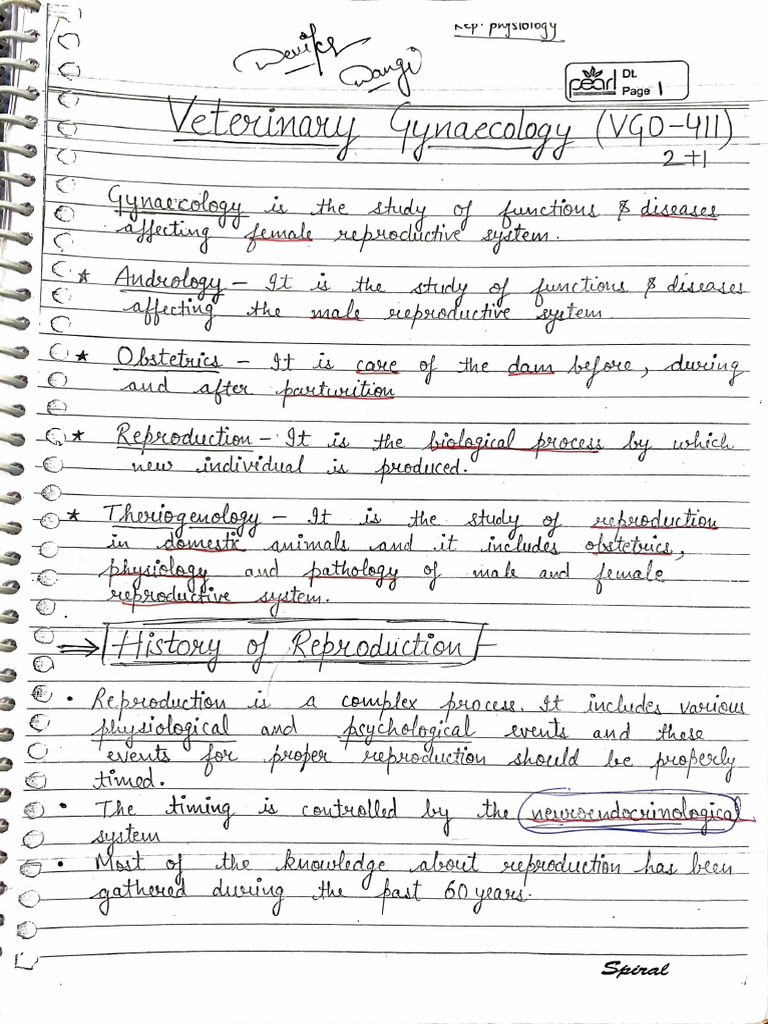 Rep. physiology
Dangi
pearl
Dt.
Page 1
Veterinary Gynaecology (VGO-411)
2+1
Gynaecology is the study of functions & diseases
affecting female reproductive system.
* Andrology - It is the study of functions & diseases
affecting the male reproductive system
* Obstetrics - It is care of the dam before, during
and after parturition
* Reproduction - It is the biological process by which
new individual is produced.
* Theriogenology - It is the study of reproduction
in domestic animals and it includes obstetrics,
physiology and pathology of male and female
reproductive system.
⇒ History of Reproduction
• Reproduction is a complex process. It includes various
physiological and psychological events and these
events for proper reproduction should be properly
timed.
• The timing is controlled by the neuroendocrinological
system
• Most of the knowledge about reproduction has been
gathered during the past 60 years.
Spiral